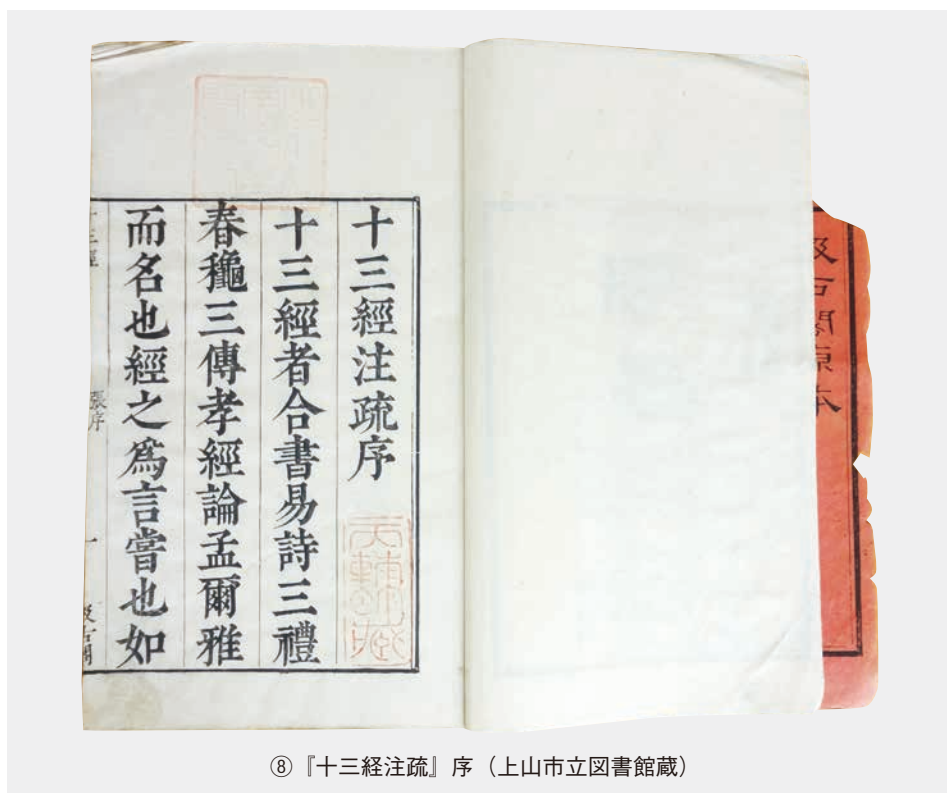 汲古閣原本
十三經注疏序
十三經者合書易詩三禮
春龝三傳孝經論孟爾雅
而名也經之爲言嘗也如
十三經
張序
一
汲古閣
⑧『十三経注疏』序（上山市立図書館蔵）